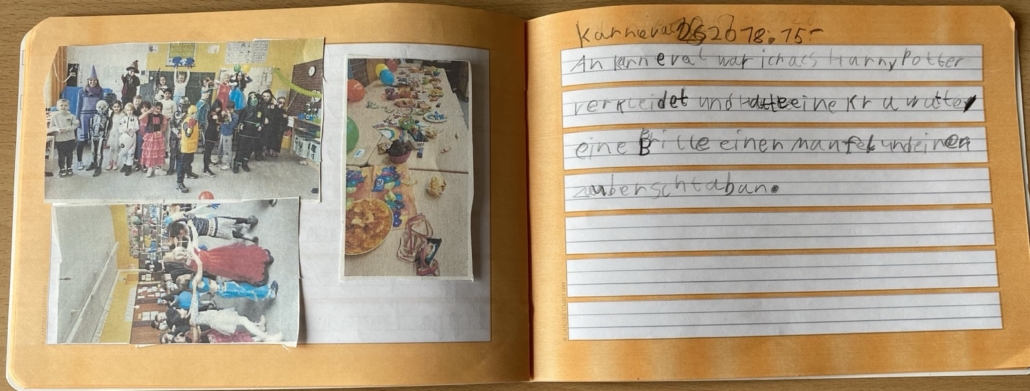 Karneval
An karneval war ich als Harry Potter
verkleidet und hatte eine Krawatte,
eine Brille einen mantel und einen
zauberschtaban.